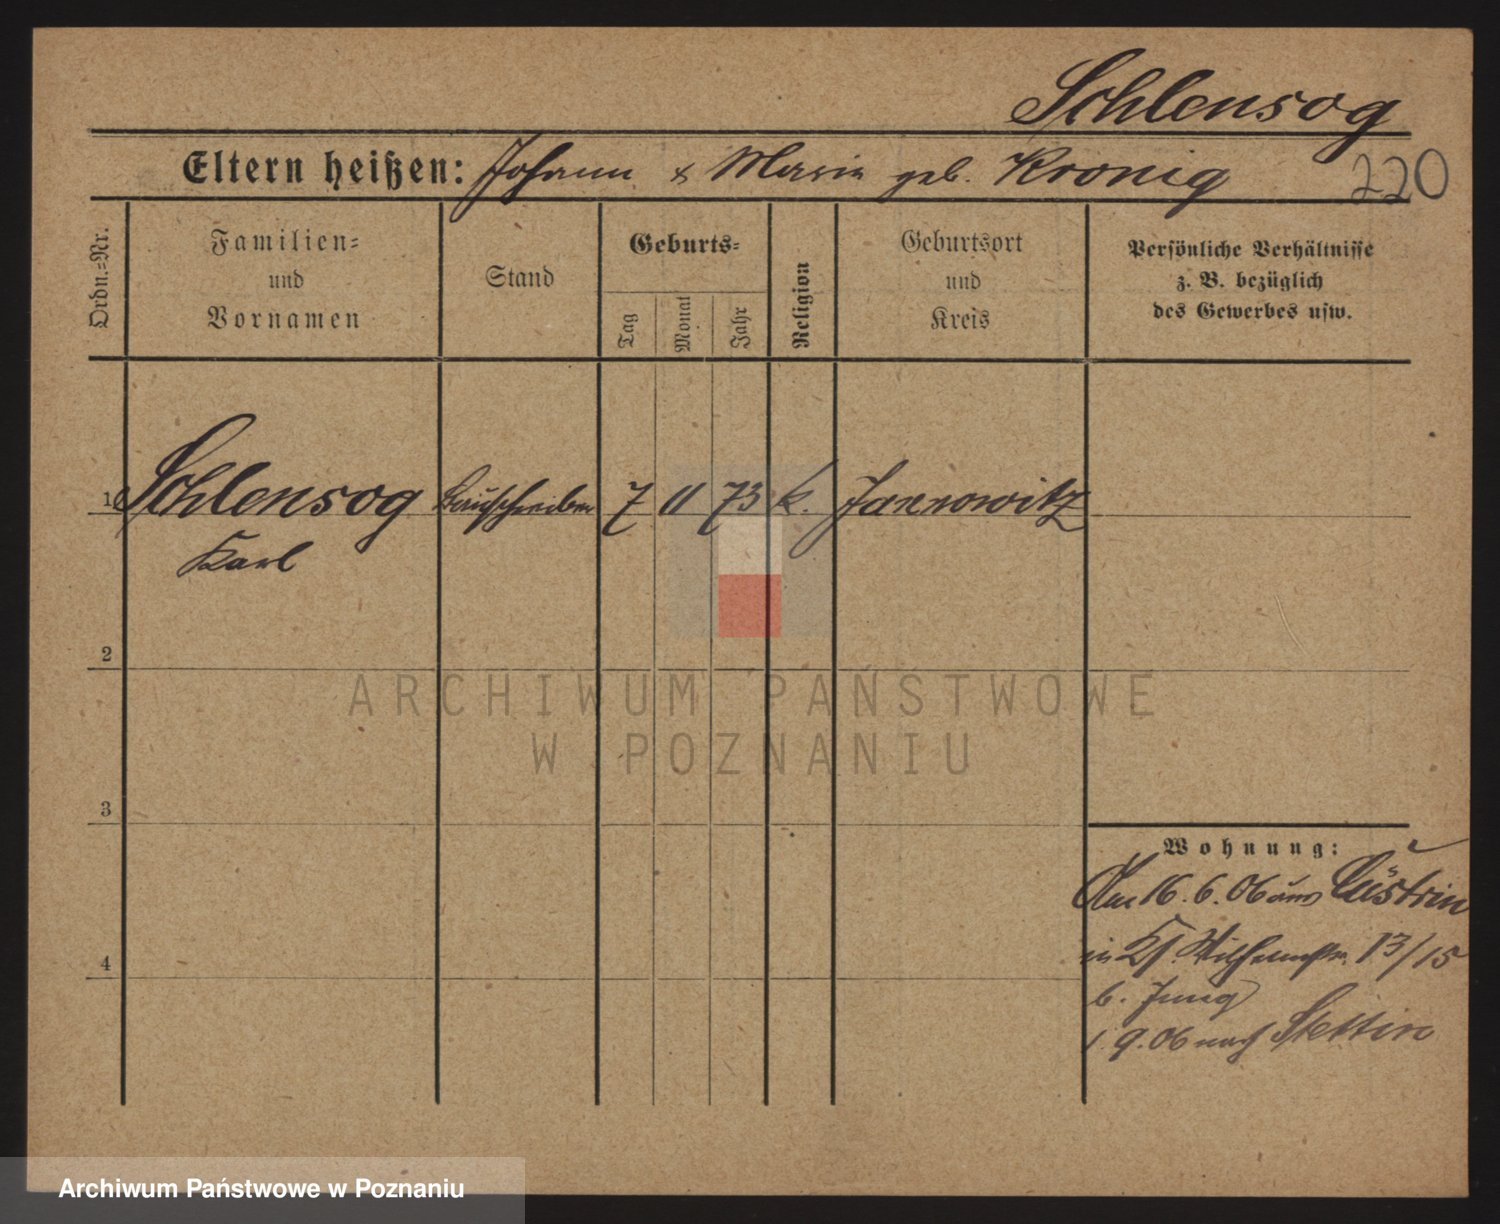 Schlensog
Eltern heißen: Johann & Marie geb. Kronig
220
Ordn.=Nr.
Familien=
und
Vornamen
Stand
Geburts=
Tag
Monat
Jahr
Religion
Geburtsort
und
Kreis
Persönliche Verhältnisse
z. B. bezüglich
des Gewerbes usw.
1 Schlensog Bauschreiber 7 11 73 k. Jannowitz
Karl
2
3
4
Wohnung:
Am 16. 6. 06 aus Cüstrin
in Wilhelmstr. 13/15
b. Jung
1. 9. 06 nach Stettin
ARCHIWUM PAŃSTWOWE
W POZNANIU
Archiwum Państwowe w Poznaniu